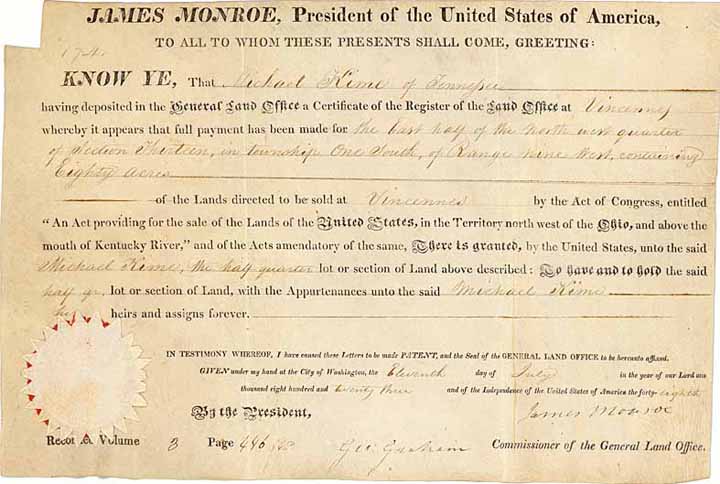 JAMES MONROE, President of the United States of America,
TO ALL TO WHOM THESE PRESENTS SHALL COME, GREETING:
KNOW YE, That Michael Kime of Tennessee
having deposited in the General Land Office a Certificate of the Register of the Land Office at Vincennes
whereby it appears that full payment has been made for the East half of the North west quarter
of Section Thirteen, in township One South, of Range nine West, containing
Eighty Acres
of the Lands directed to be sold at Vincennes by the Act of Congress, entitled
"An Act providing for the sale of the Lands of the United States, in the Territory north west of the Ohio, and above the
mouth of Kentucky River," and of the Acts amendatory of the same, There is granted, by the United States, unto the said
Michael Kime, the half quarter lot or section of Land above described: To have and to hold the said
half qr. lot or section of Land, with the Appurtenances unto the said Michael Kime
his heirs and assigns forever.
IN TESTIMONY WHEREOF, I have caused these Letters to be made PATENT, and the Seal of the GENERAL LAND OFFICE to be hereunto affixed.
GIVEN under my hand at the City of Washington, the Eleventh day of July in the year of our Lord one
thousand eight hundred and twenty three and of the Independence of the United States of America the forty-eighth
James Monroe
By the President,
Recor Volume 3 Page 446 Geo: Graham Commissioner of the General Land Office.